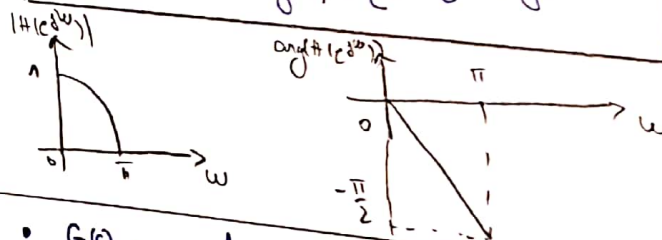 |H(e^{jω})|
1
0
π
ω
arg(H(e^{jω}))
π
0
ω
-π/2